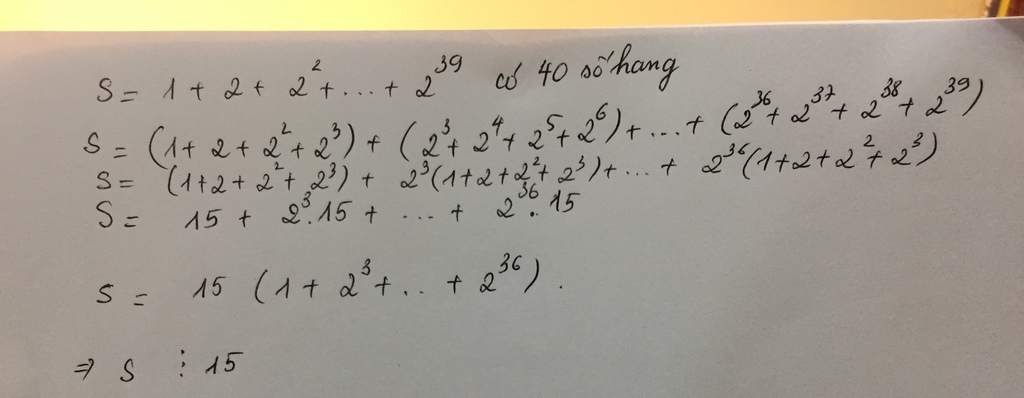 S = 1 + 2 + 2² + ... + 2³⁹ có 40 số hang
S = (1 + 2 + 2² + 2³) + (2³ + 2⁴ + 2⁵ + 2⁶) + ... + (2³⁶ + 2³⁷ + 2³⁸ + 2³⁹)
S = (1 + 2 + 2² + 2³) + 2³(1 + 2 + 2² + 2³) + ... + 2³⁶(1 + 2 + 2² + 2³)
S = 15 + 2³.15 + ... + 2³⁶.15
S = 15 (1 + 2³ + .. + 2³⁶).
⇒ S ⋮ 15